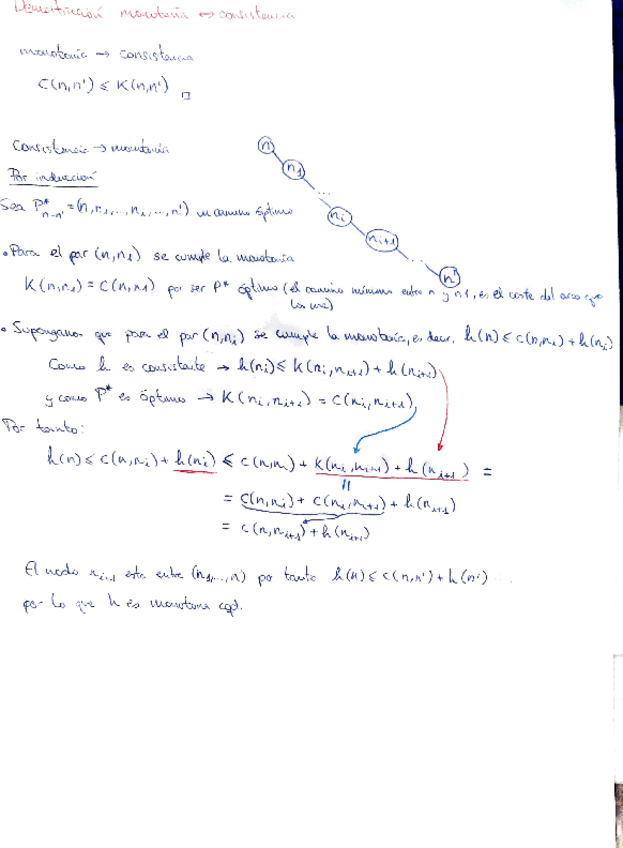 Demostración monotonía ↔ consistencia
monotonía → consistencia
C(n,n') ≤ K(n,n') □
Consistencia → monotonía
Por inducción
Sea P*ₙ₋ₙ' = (n, n₁, ..., nᵢ, ..., n') un camino óptimo
n
n₁
...
nᵢ
nᵢ₊₁
...
n'
• Para el par (n,n₁) se cumple la monotonía
K(n,n₁) = C(n,n₁) por ser P* óptimo (el camino mínimo entre n y n₁, es el coste del arco que
los une)
• Supongamos que para el par (n,nᵢ) se cumple la monotonía, es decir, h(n) ≤ c(n,nᵢ) + h(nᵢ)
Como h es consistente → h(nᵢ) ≤ K(nᵢ,nᵢ₊₁) + h(nᵢ₊₁)
y como P* es óptimo → K(nᵢ,nᵢ₊₁) = C(nᵢ,nᵢ₊₁)
Por tanto:
h(n) ≤ c(n,nᵢ) + h(nᵢ) ≤ c(n,nᵢ) + K(nᵢ,nᵢ₊₁) + h(nᵢ₊₁) =
= c(n,nᵢ) + c(nᵢ,nᵢ₊₁) + h(nᵢ₊₁)
= c(n,nᵢ₊₁) + h(nᵢ₊₁)
El nodo nᵢ₊₁ esta entre (n₁,...,n') por tanto h(n) ≤ c(n,n') + h(n') ...
por lo que h es monotona cqd.